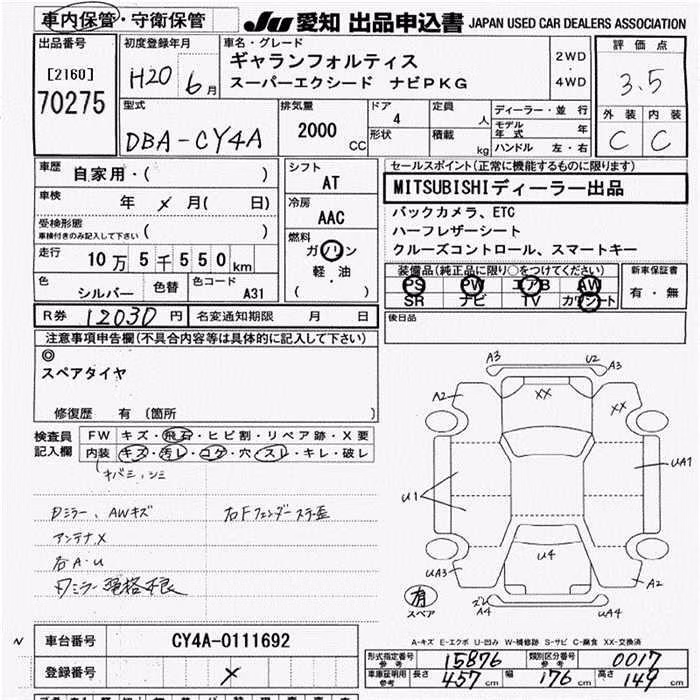 車内保管・守衛保管
JU 愛知 出品申込書 JAPAN USED CAR DEALERS ASSOCIATION
出品番号
[2160]
70275
初度登録年月
H20 6月
車名・グレード
ギャランフォルティス
スーパーエクシード ナビPKG
2WD
・
4WD
評価点
3.5
外装 内装
C C
型式
DBA-CY4A
排気量
2000 CC
ドア
4
形状
定員
人
積載
kg
ディーラー・並行
モデル年式 年
ハンドル 左・右
車歴
自家用・( )
車検
年 メ 月( 日)
受検形態
車検付きのみ記入して下さい ( )
走行
10万5千550km
色
シルバー
色替
色コード
A31
シフト
AT
冷房
AAC
燃料
ガソリン
軽・油
( )
セールスポイント(正常に機能するものに限ります)
MITSUBISHIディーラー出品
バックカメラ、ETC
ハーフレザーシート
クルーズコントロール、スマートキー
装備品(純正品に限り○をつけてください)
PS PW エアB AW
SR ナビ TV カワシート
新車保証書
有・無
後日品
R券 12030 円 名変通知期限 月 日
注意事項申告欄(不具合内容等は具体的に記入して下さい)
◎
スペアタイヤ
修復歴 有 (箇所 )
検査員
記入欄
FW キズ・飛石・ヒビ割・リペア跡・X要
内装 キズ・汚レ・コゲ・穴・スレ・キレ・破レ
キバミ、シミ
Dミラー、AWキズ
右Fフェンダーステー歪
アンテナX
各A・U
Dミラー
A3 U2 A3
A2 XX XX
UA1
U1
U4
UA3 A2
A4 UA4
有
スペア
A-キズ E-エクボ U-凹み W-補修跡 S-サビ C-腐食 XX-交換済
N
車台番号
CY4A-0111692
登録番号
メ
形式指定番号
参考
15876
類別区分番号
参考
0017
車庫証明用
参考
長さ 457cm 幅 176cm 高さ 149cm